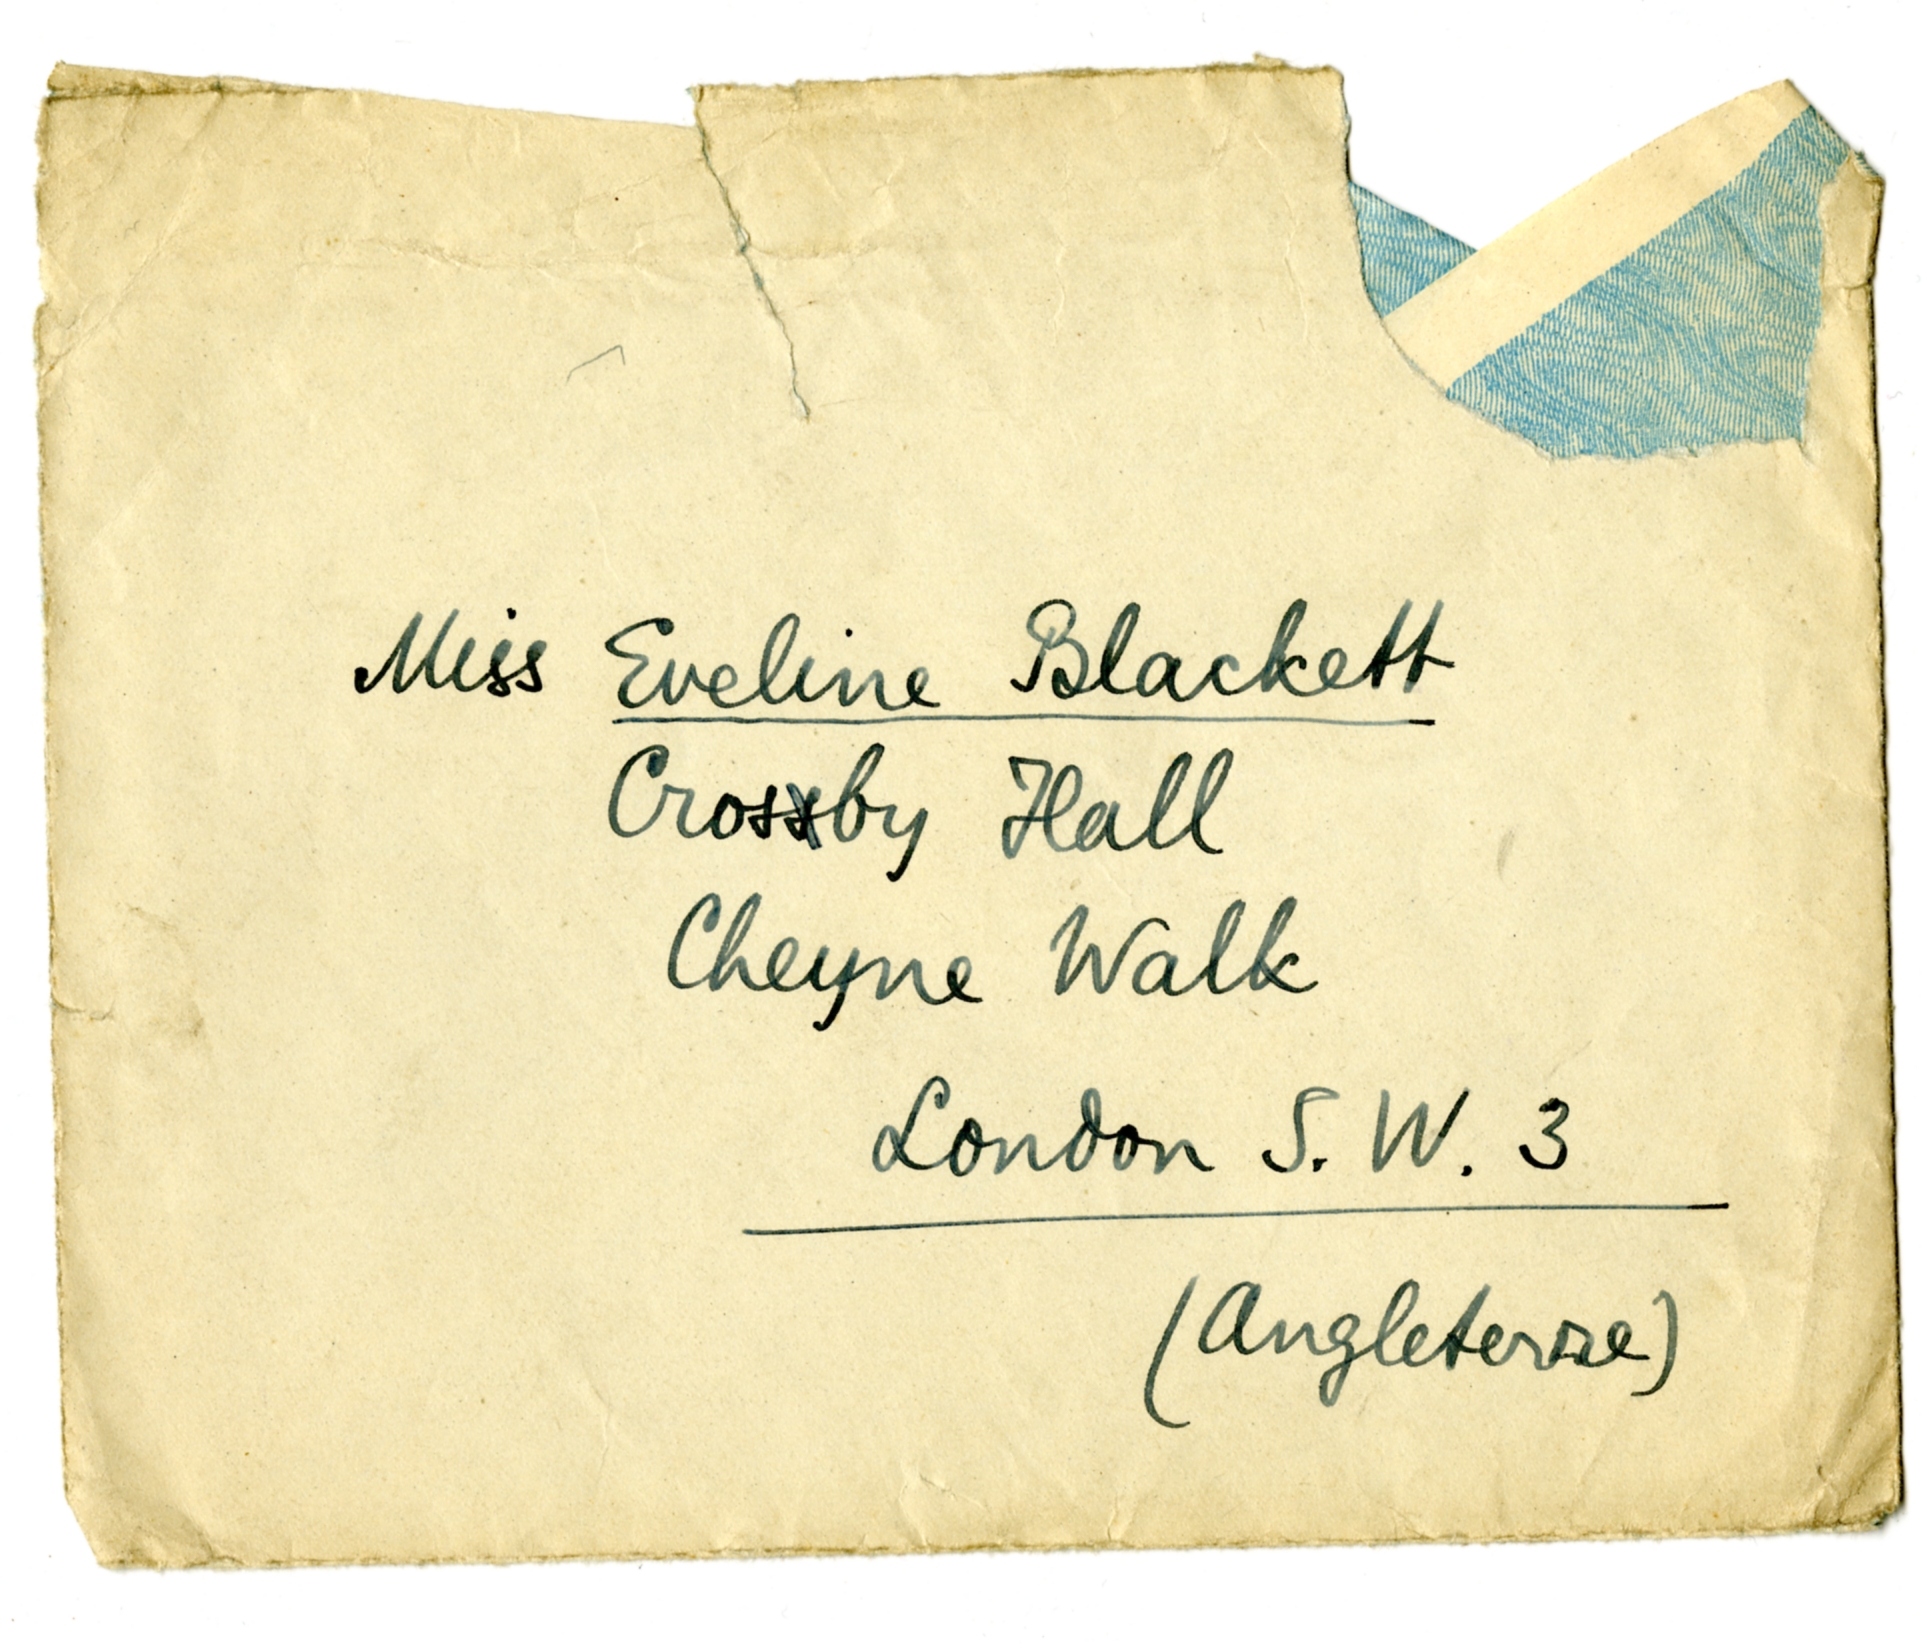 Miss Eveline Blackett
Crosby Hall
Cheyne Walk
London S. W. 3
(Angleterre)